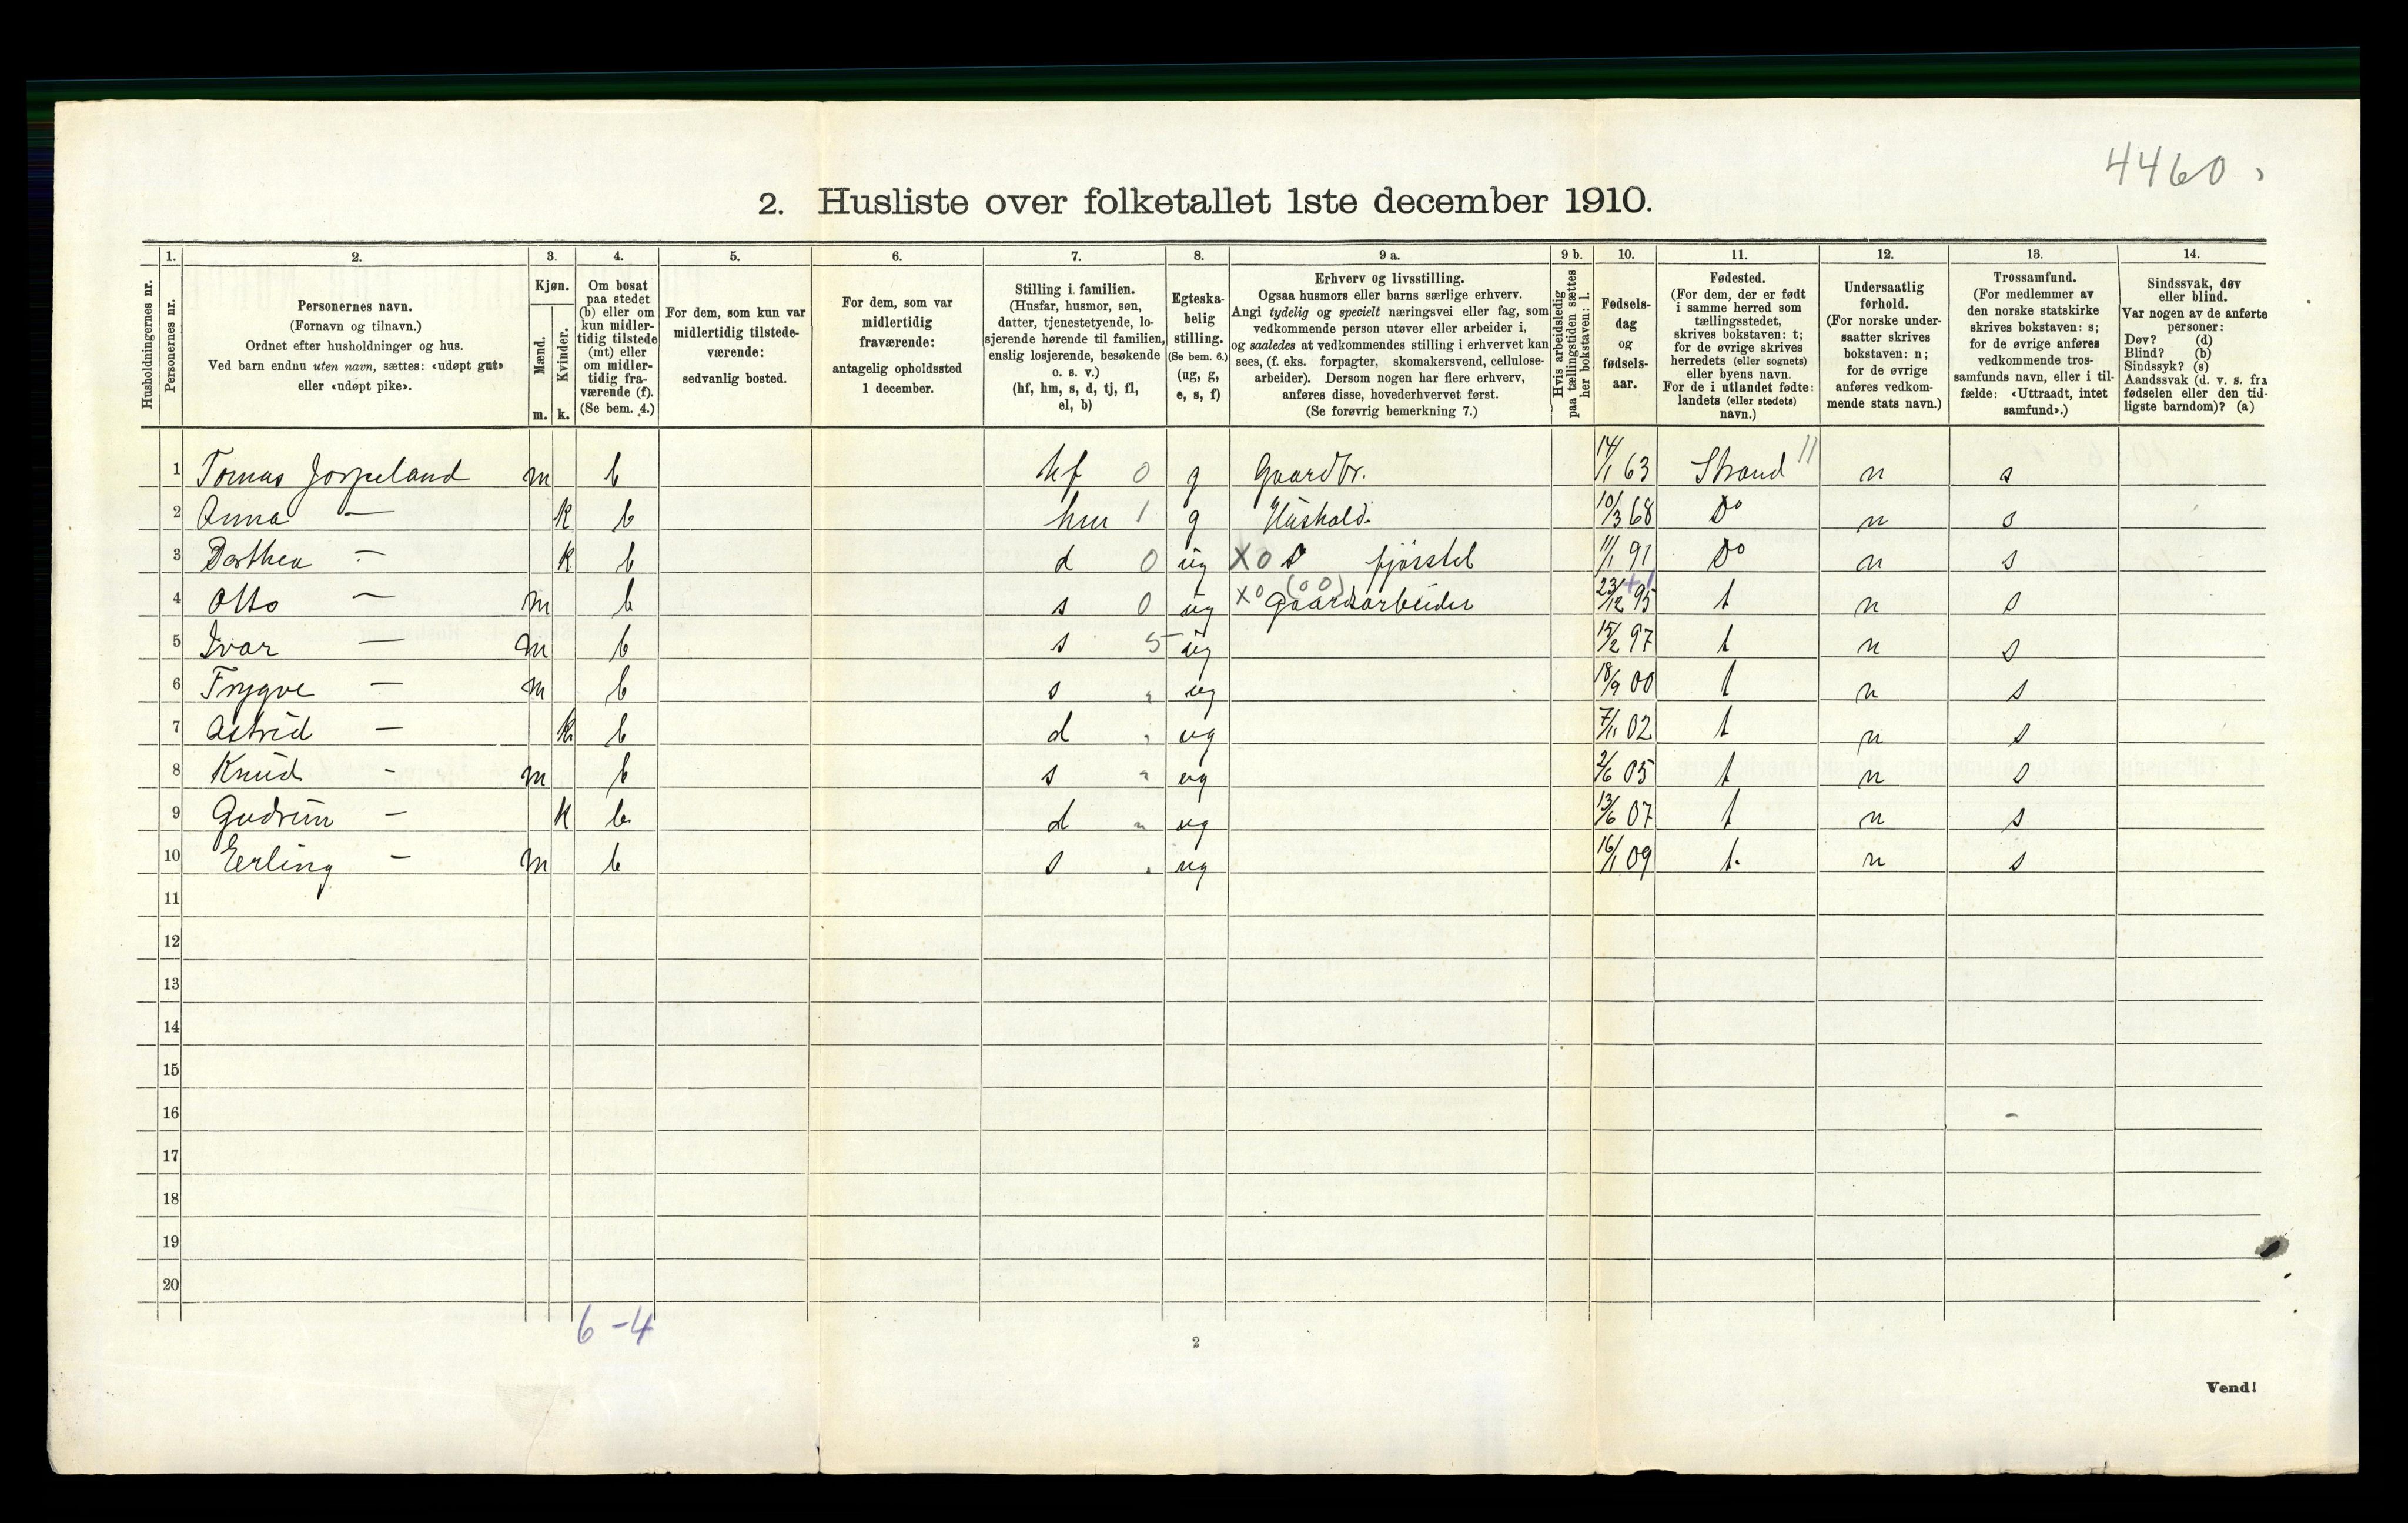 4460
2. Husliste over folketallet 1ste december 1910.
Husholdningernes nr.
1. Personernes nr.
2. Personernes navn. (Fornavn og tilnavn.) Ordnet efter husholdninger og hus. Ved barn endnu uten navn, sættes: «udøpt gut» eller «udøpt pike».
3. Kjøn. Mænd. m. Kvinder. k.
4. Om bosat paa stedet (b) eller om kun midlertidig tilstede (mt) eller om midlertidig fraværende (f). (Se bem. 4.)
5. For dem, som kun var midlertidig tilstedeværende: sedvanlig bosted.
6. For dem, som var midlertidig fraværende: antagelig opholdssted 1 december.
7. Stilling i familien. (Husfar, husmor, søn, datter, tjenestetyende, losjerende hørende til familien, enslig losjerende, besøkende o. s. v.) (hf, hm, s, d, tj, fl, el, b)
8. Egteskabelig stilling. (Se bem. 6.) (ug, g, e, s, f)
9 a. Erhverv og livsstilling. Ogsaa husmors eller barns særlige erhverv. Angi tydelig og specielt næringsvei eller fag, som vedkommende person utøver eller arbeider i, og saaledes at vedkommendes stilling i erhvervet kan sees, (f. eks. forpagter, skomakersvend, cellulosearbeider). Dersom nogen har flere erhverv, anføres disse, hovederhvervet først. (Se forøvrig bemerkning 7.)
9 b. Hvis arbeidsledig paa tællingstiden sættes her bokstaven: l.
10. Fødselsdag og fødselsaar.
11. Fødested. (For dem, der er født i samme herred som tællingsstedet, skrives bokstaven: t; for de øvrige skrives herredets (eller sognets) eller byens navn. For de i utlandet fødte: landets (eller stedets) navn.)
12. Undersaatlig forhold. (For norske undersaatter skrives bokstaven: n; for de øvrige anføres vedkommende stats navn.)
13. Trossamfund. (For medlemmer av den norske statskirke skrives bokstaven: s; for de øvrige anføres vedkommende trossamfunds navn, eller i tilfælde: «Uttraadt, intet samfund».)
14. Sindssvak, døv eller blind. Var nogen av de anførte personer: Døv? (d) Blind? (b) Sindssyk? (s) Aandssvak (d. v. s. fra fødselen eller den tidligste barndom)? (a)
1 Tomas Jørpeland m b hf 0 g Gaardbr. 14/1 63 Strand 11 n s
2 Anna — k b hm 1 g Hushold. 10/3 68 Do n s
3 Dorthea — k b d 0 ug X0 fjøsstel 11/1 91 Do n s
4 Otto — m b s 0 ug X0 (00) gaardsarbeider 23/12 95 +1 t n s
5 Ivar — m b s 5 ug 15/2 97 t n s
6 Trygve — m b s " ug 18/9 00 t n s
7 Astrid — k b d " ug 7/11 02 t n s
8 Knud - m b s " ug 2/6 05 t n s
9 Gudrun — k b d " ug 13/6 07 t n s
10 Erling — m b s " ug 16/1 09 t. n s
11
12
13
14
15
16
17
18
19
20
6-4
2
Vend!